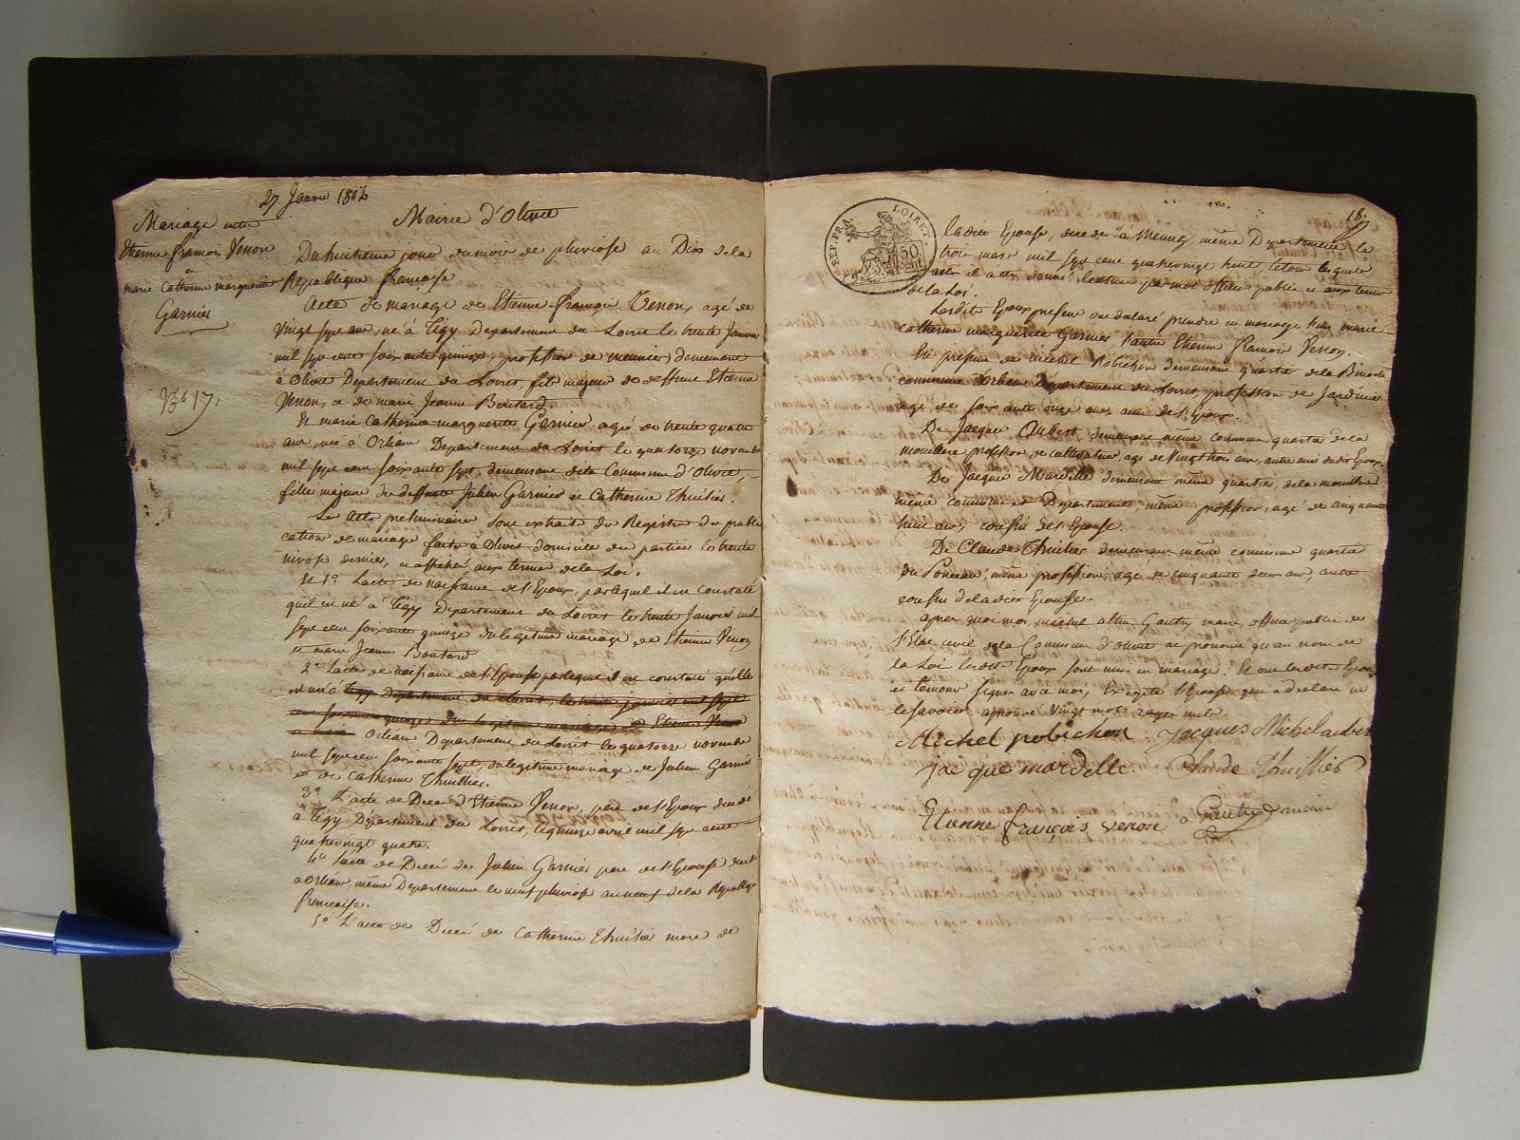 27 Janvier 1802
Mariage entre
Etienne françois Venon
&
marie Catherine marguerite
Garnier
No 17.
Mairie d'Olivet
Du huitieme jour du mois de pluviose an Dix de la
Republique françoise
Acte de mariage de Etienne françois Venon, agé de
vingt sept ans, né à Tigy Departement du Loiret le trente Janvier
mil sept cents soixante quinze, profession de meunier, demeurant
à Olivet Departement du Loiret, fils majeur de deffunt Etienne
Venon, et de marie Jeanne Boutard.
Et marie Catherine marguerite Garnier agée de trente quatre
ans, née à Orléans Departement du Loiret le quatorze novembre
mil sept cent soixante sept, demeurante dela Commune d'Olivet,
fille majeure de deffunts Julien Garnier et Catherine Thuillier.
Les actes preliminaires sont extraits des Registres des publi
cations de mariage faites à Olivet domicile des parties le trente
nivose dernier, et affichés aux termes de la Loi.
De 1o L'acte de naissance de l'Epoux, par lequel il est constaté
qu'il est né à Tigy Departement du Loiret le trente Janvier mil
sept cent soixante quinze du legitime mariage de Etienne Venon
et marie Jeanne Boutard
2o L'acte de naissance de l'Epouse par lequel il est constaté qu'elle
est née à Tigy departement du Loiret, le trente janvier mil sept
cent soixante quinze du legitime mariage de Etienne Venon
Orléans Departement du Loiret le quatorze novembre
mil sept cent soixante sept, du legitime mariage de Julien Garnier
et de Catherine Thuillier.
3o L'acte de Decès d'Etienne Venon, pere de l'Epoux decedé
à Tigy Departement du Loiret, le quinze avril mil sept cent
quatrevingt quatre.
4o L'acte de Decès de Julien Garnier pere de l'Epouse decedé
a Orléans même Departement le neuf pluviose an neuf de la Republique
françoise.
5o L'acte de Decès de Catherine Thuillier mere de
REP. FRA. LOIRET
50
CENT
18.
ladite Epouse, decedée à Meung même Departement le
trois mars mil sept cent quatrevingt huit le tout lesquels
actes il a été donné lecture par moi officier public et aux termes
de la Loi.
Lesdits Epoux presens ont declaré prendre en mariage l'un marie
Catherine marguerite Garnier l'autre Etienne françois Venon.
En presence de michel Robichon demeurant quartier de la Binoche
commune d'Orléans Departement du Loiret, profession de Jardinier
agé de soixante onze ans, ami de l'Epoux.
De Jacques Aubert, demeurant même commune quartier de la
mouillere profession de cultivateur, agé de vingt trois ans, autre ami dudit Epoux
De Jacques Mardelle demeurant même quartier de la mouillere
même commune et Departement, même profession, agé de cinquante
huit ans, cousin de l'Epouse.
De Claude Thuillier demeurant même commune quartier
du Ponceau, même profession, agé de cinquante deux ans, autre
cousin de ladite Epouse.
après quoi moi, michel Gautry, maire, officier public de
l'Etat civil de la Commune d'olivet ai prononcé qu'au nom de
la Loi lesdits Epoux sont unis en mariage. Et ont lesdits Epoux
et temoins signé avec moi, Excepté l'Epouse qui a declaré ne
le savoir approuvé vingt mots rayés nuls
Michel robichon Jacques Michel aubert
jacque mardelle. Claude Thuillier
Etienne françois venon Gautry maire